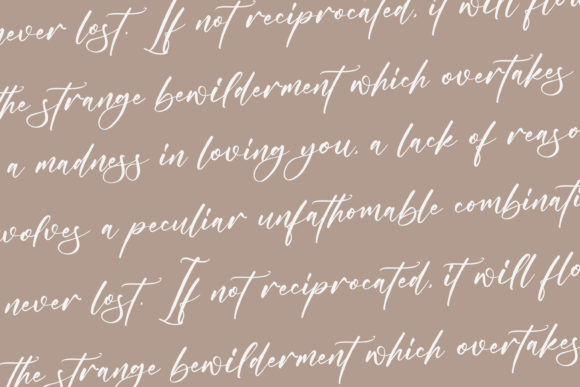 never lost. If not reciprocated, it will flo
the strange bewilderment which overtakes
a madness in loving you, a lack of reaso
volves a peculiar unfathomable combinati
never lost. If not reciprocated, it will flo
the strange bewilderment which overtakes